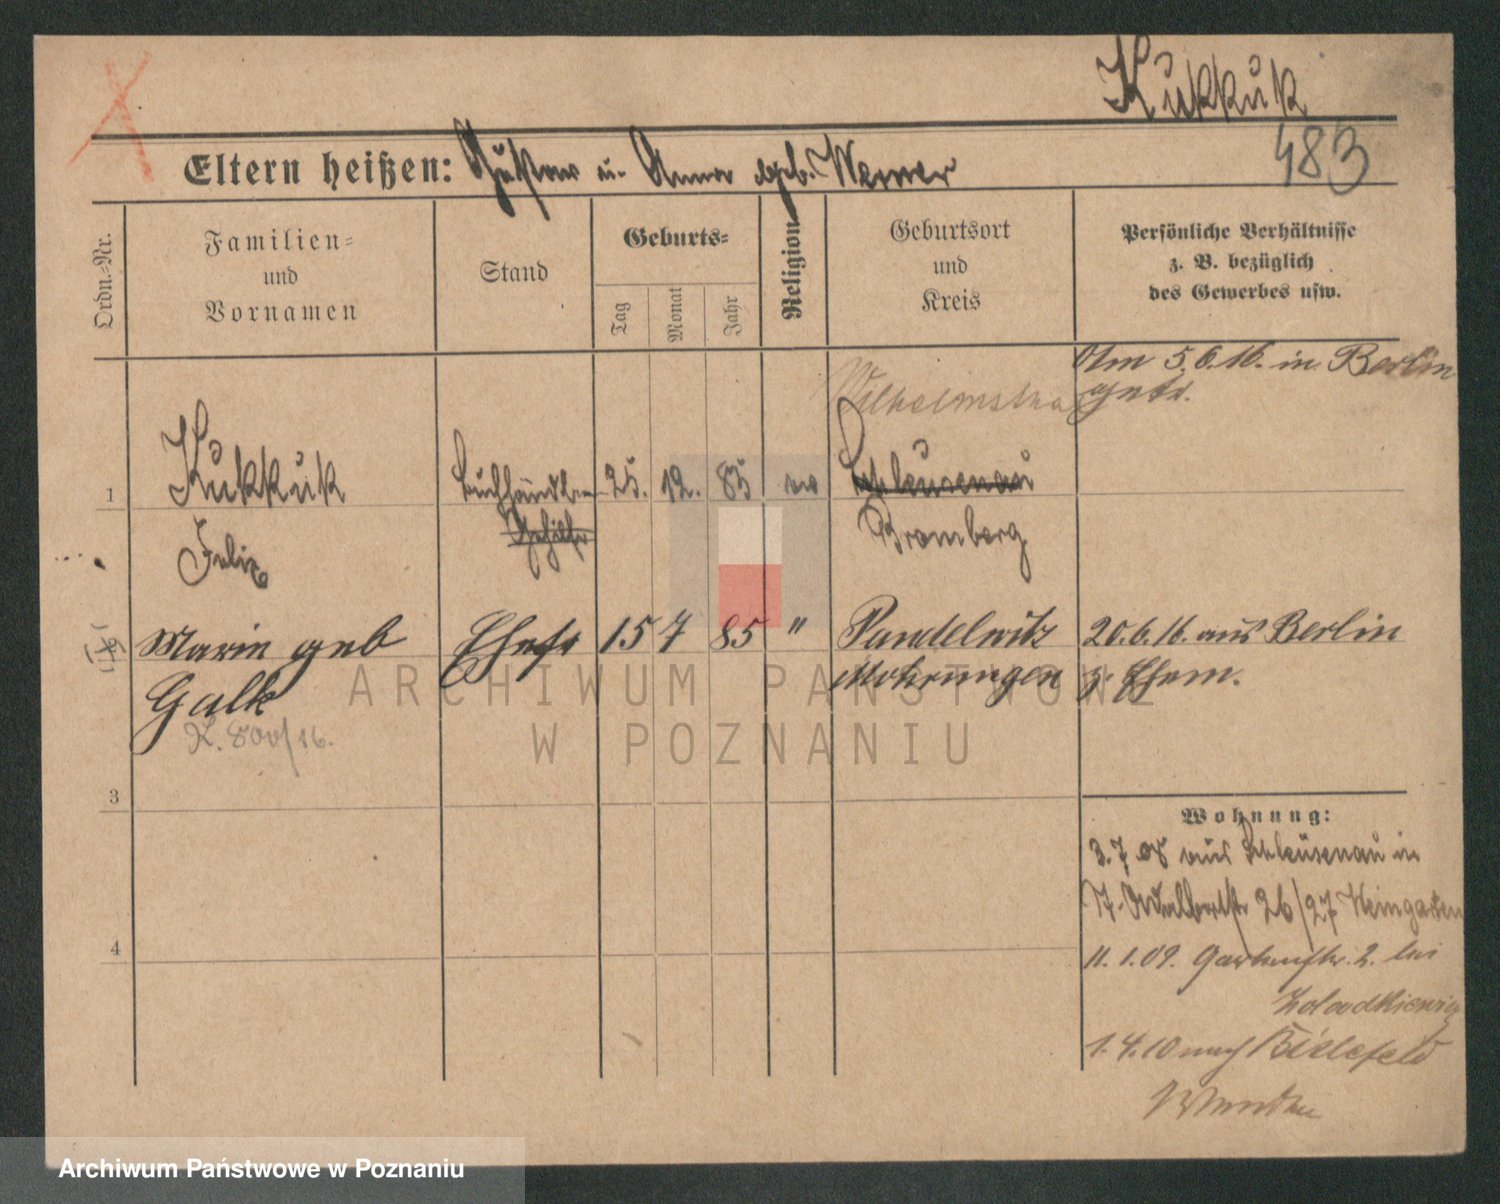 Kukkuk
483
Eltern heißen: Gustav u. Anna geb. Werner
Ordn.-Nr.
Familien-
und
Vornamen
Stand
Geburts-
Tag
Monat
Jahr
Religion
Geburtsort
und
Kreis
Persönliche Verhältnisse
z. B. bezüglich
des Gewerbes usw.
Am 5.6.16. in Berlin
getr.
Wilhelmstha
1
Kukkuk
Buchhändler-
25. 12. 85
Schleusenau
Gehilfe
Bromberg
Felix
Marie geb
Ehefr
15 7 85 "
20.6.16. aus Berlin
Galk
Mohrungen
z. Ehem.
K. 800/16.
3
Wohnung:
3.7.08 aus Schleusenau in
Adalbertstr 26/27 Weingarten
4
11.1.09. Gartenstr. 2. bei
1.4.10 nach Bielefeld
ARCHIWUM PAŃSTWOWE
W POZNANIU
Archiwum Państwowe w Poznaniu